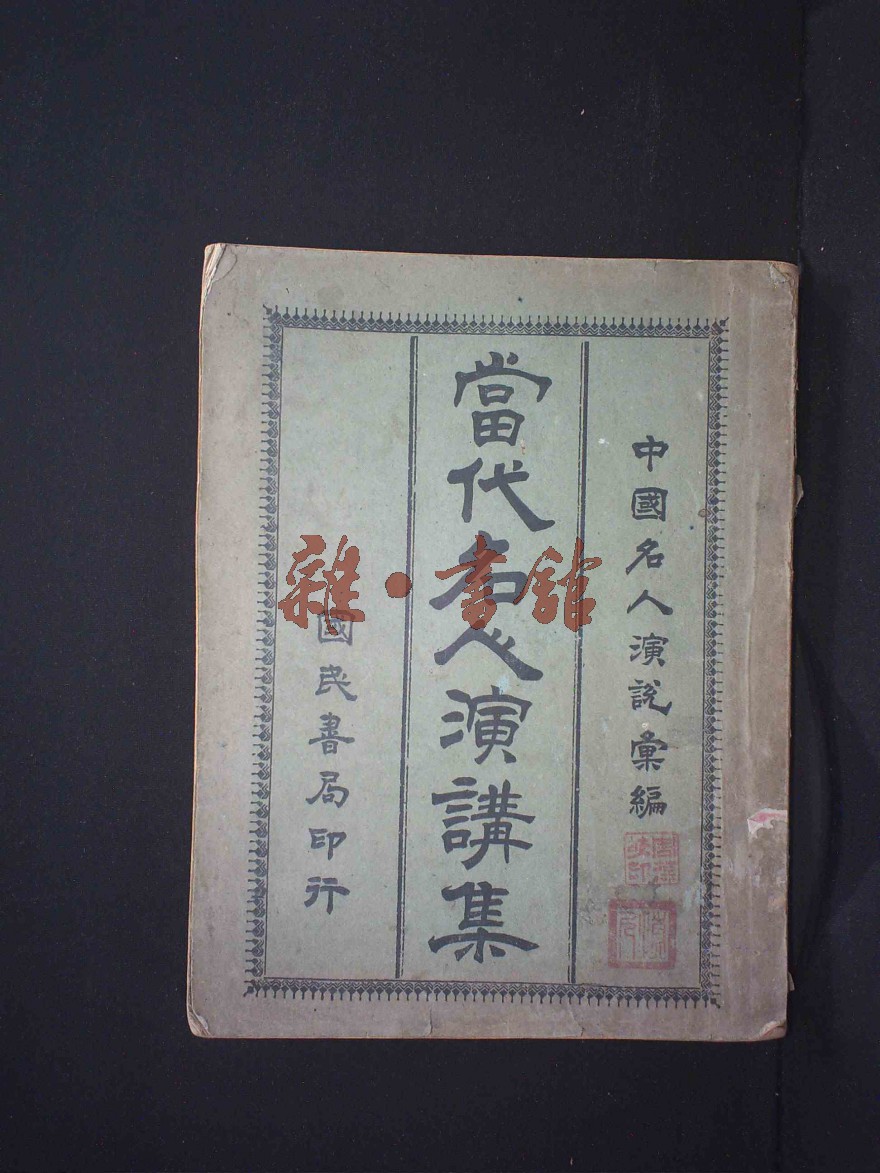 中國名人演說彙編
當代名人演講集
國民書局印行
雜·書館